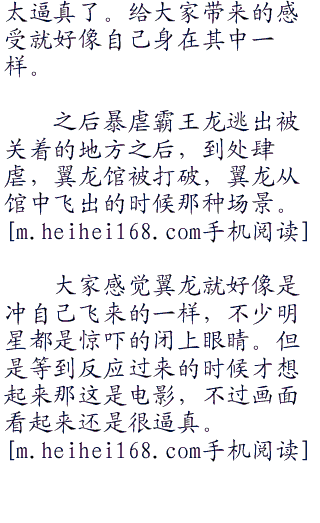 太逼真了。给大家带来的感
受就好像自己身在其中一
样。
之后暴虐霸王龙逃出被
关着的地方之后，到处肆
虐，翼龙馆被打破，翼龙从
馆中飞出的时候那种场景。
[m.heihei168.com手机阅读]
大家感觉翼龙就好像是
冲自己飞来的一样，不少明
星都是惊吓的闭上眼睛。但
是等到反应过来的时候才想
起来那这是电影，不过画面
看起来还是很逼真。
[m.heihei168.com手机阅读]